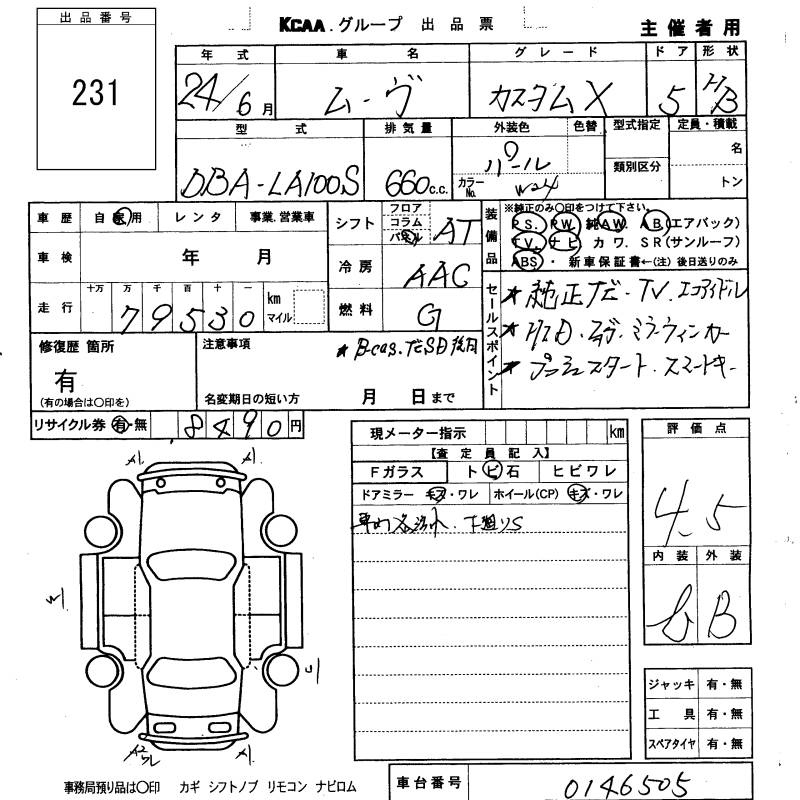 KCAA.グループ 出品票
主催者用
出品番号
231
年式 車名 グレード ドア 形状
24/6月 ムーヴ カスタムX 5 HB
型式 排気量 外装色 色替 型式指定 定員・積載
DBA-LA100S 660c.c. パール 名
カラーNo. W24 類別区分 トン
車歴 自家用 レンタ 事業.営業車
シフト フロア コラム パネル AT
装備品
※純正のみ〇印をつけて下さい。
P.S. P.W. 純A.W. A.B.(エアバック)
T.V. ナビ カワ. SR(サンルーフ)
ABS・新車保証書←(注)後日送りのみ
車検 年 月
冷房 AAC
走行 十万 万 千 百 十 一
79530 km マイル
燃料 G
セールスポイント
★純正ナビ・TV.エコアイドル
★HID.フォグ.ミラーウィンカー
★プッシュスタート.スマートキー
修復歴 箇所
有
(有の場合は〇印を)
注意事項
★B-cas.ナビSD後日
名変期日の短い方 月 日まで
リサイクル券 有・無 8490円
現メーター指示 km
【査定員記入】
Fガラス トビ石 ヒビワレ
ドアミラー キズ・ワレ ホイール(CP) キズ・ワレ
下廻りS
評価点
4.5
内装 外装
b B
A1 A1
A2 ワレ A1
ジャッキ 有・無
工具 有・無
スペアタイヤ 有・無
事務局預り品は〇印 カギ シフトノブ リモコン ナビロム
車台番号 0146505